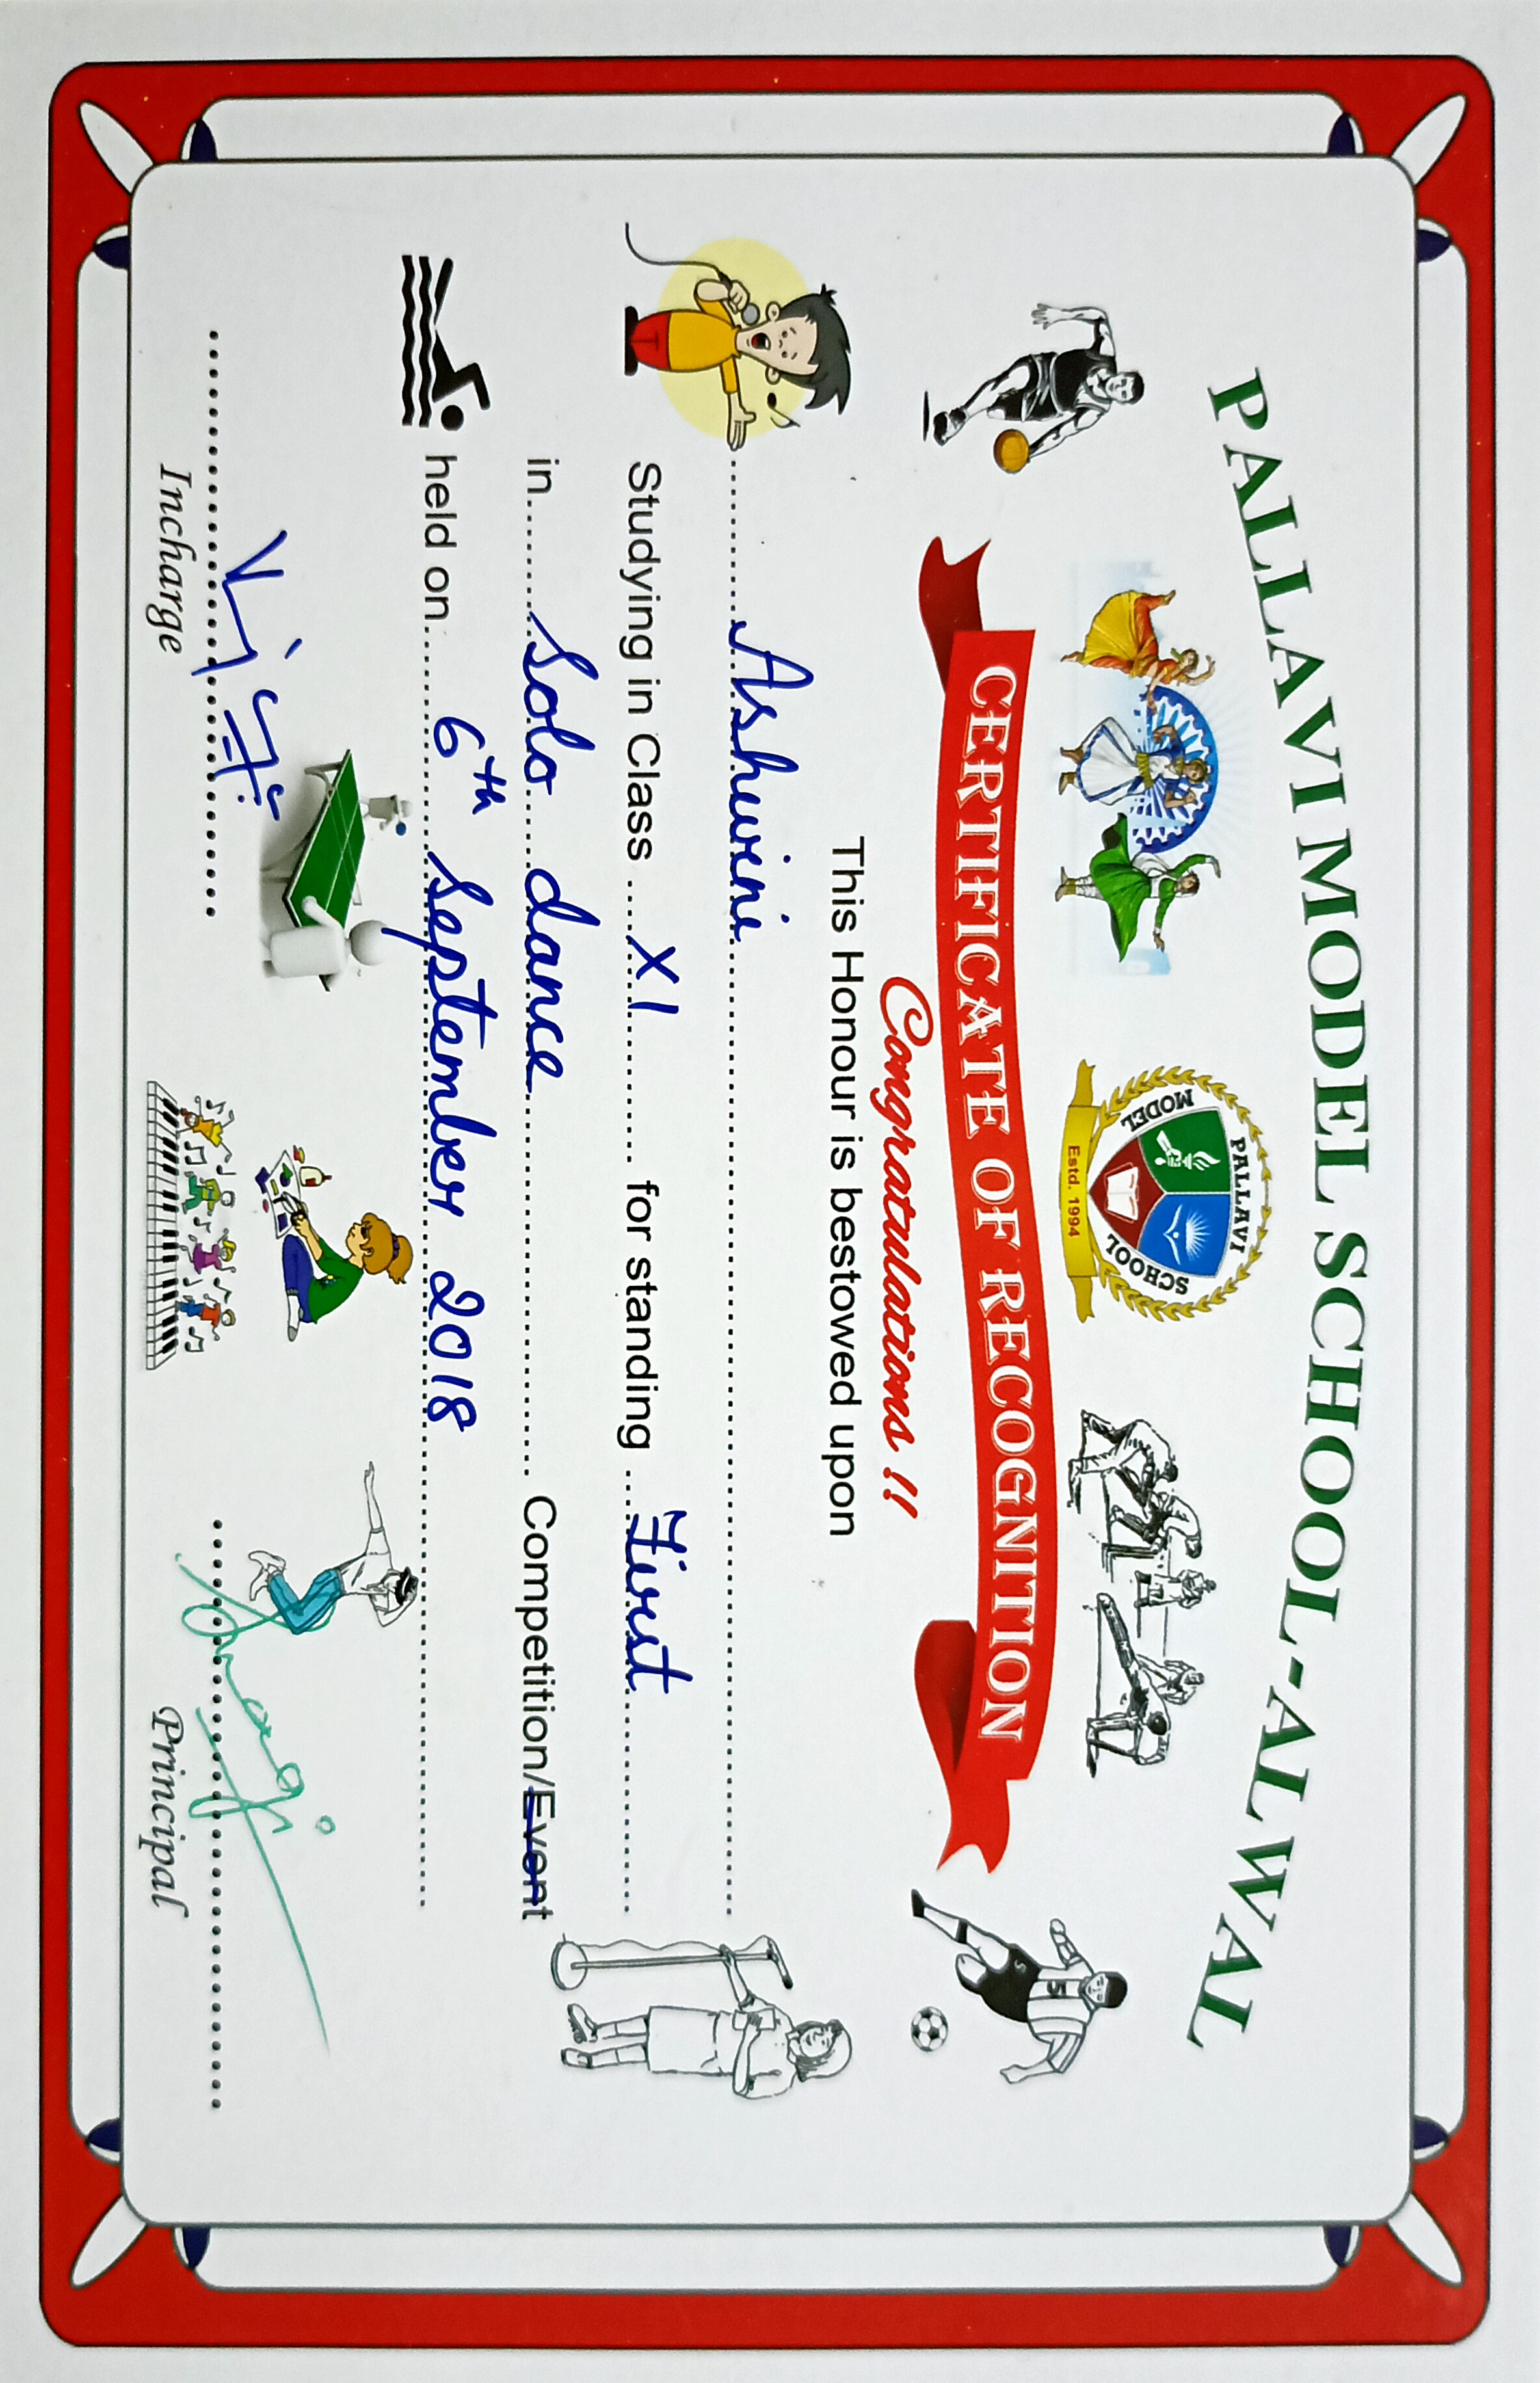 PALLAVI MODEL SCHOOL-ALWAL
PALLAVI
MODEL SCHOOL
Estd. 1994
CERTIFICATE OF RECOGNITION
Congratulations !!
This Honour is bestowed upon
Ashwini
Studying in Class XI for standing First
in Solo dance Competition/Event
held on 6th September 2018
Incharge
Principal